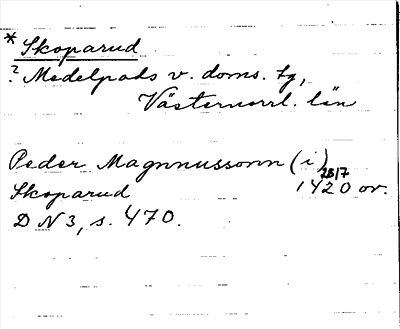 * Skoparud
? Medelpads v. doms. tg,
Västernorrl. län
Peder Magnnussonn (i)
28/7
Skoparud 1420 or.
DN 3, s. 470.